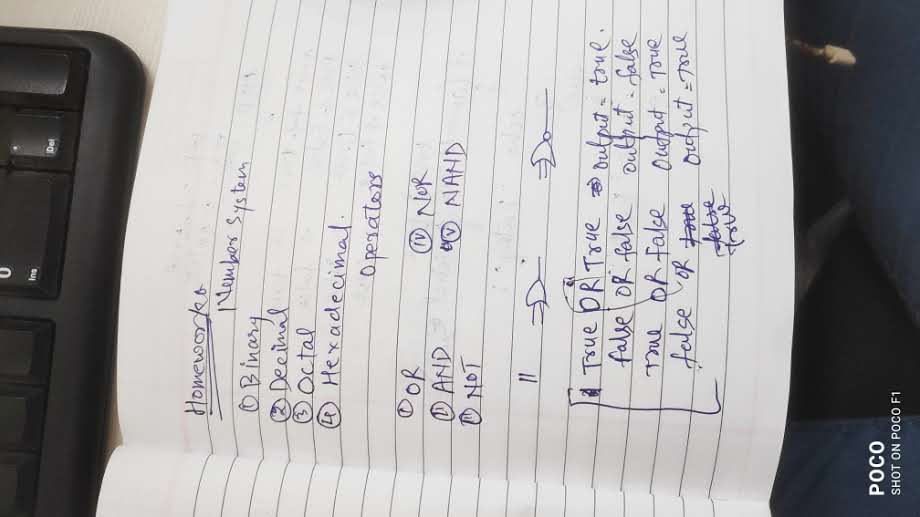 0
Ins
Del
Homeworks
Number System
① Binary
② Decimal
③ Octal
④ Hexadecimal.
Operators
Ⓘ OR ⓘⓥ NOR
ⓘⓘ AND ⓥ NAND
ⓘⓘⓘ NOT
||
True OR True => output = true.
false OR false output = false
True OR false output = True
false OR true output = True
false
True
POCO
SHOT ON POCO F1